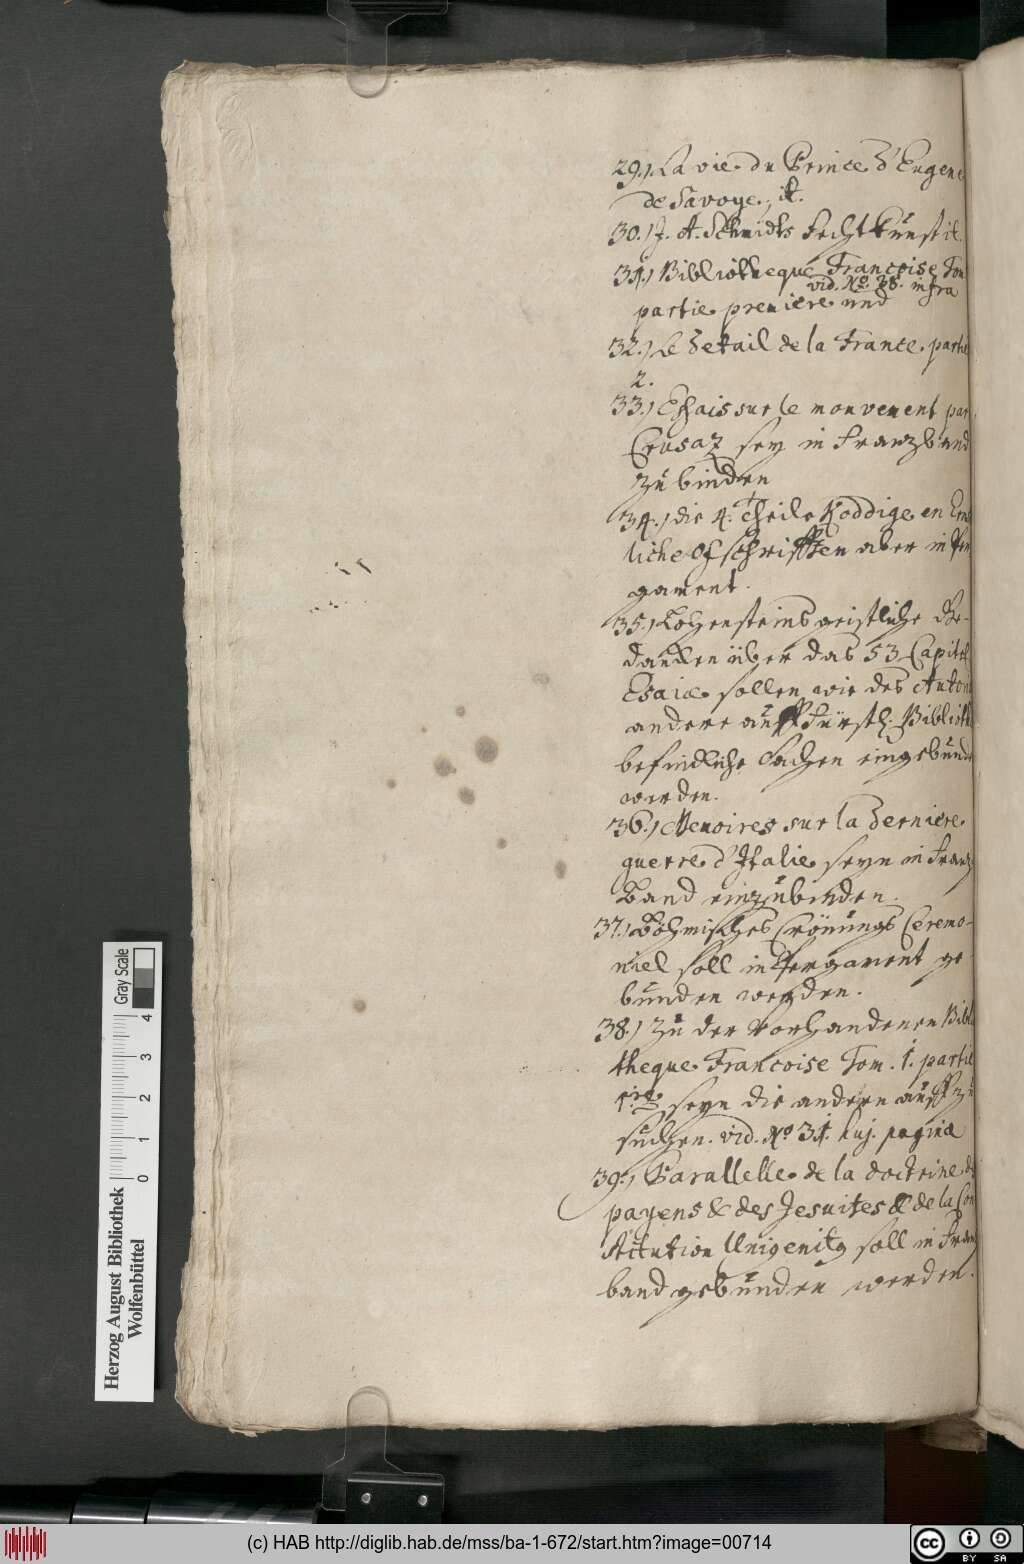 29.) La vie du Prince d'Eugene
de Savoye, it.
30.) J. A. Schmidts Fechtkunst it.
31.) Bibliotheque Francoise Tom
vid. No. 38. infra
partie premiere und
32.) Le Detail de la France, partie
2.
33.) Essais sur le mouvement par
Crusaz sey in Franzband
zu binden
34.) die 4. Theile Koddige en Ern
liche Ofschrifften aber in Per
gament.
35.) Lohensteins geistliche Ge-
dancken über das 53 Capitel
Esaiæ sollen wie des Autoris
andere auff Fürstl. Biblioth
befindliche Sachen eingebunde
werden.
36.) Memoires sur la derniere
guerre d'Italie seyn in Franz
Band einzubinden.
37.) Böhmisches Crönungs Ceremo-
niel soll in Pergament ge-
bunden werden.
38.) Zu der vorhandenen Biblio
theque Francoise Tom. 1. partie
1.re seyn die andern auff zu
suchen. vid. No 31. huj. paginæ
39.) Parallelle de la doctrine de
payens & des Jesuites & de la Con
stitution Unigenitq soll in Franz
band gebunden werden.
Herzog August Bibliothek
Wolfenbüttel
0 1 2 3 4
Gray Scale
(c) HAB http://diglib.hab.de/mss/ba-1-672/start.htm?image=00714
cc BY SA